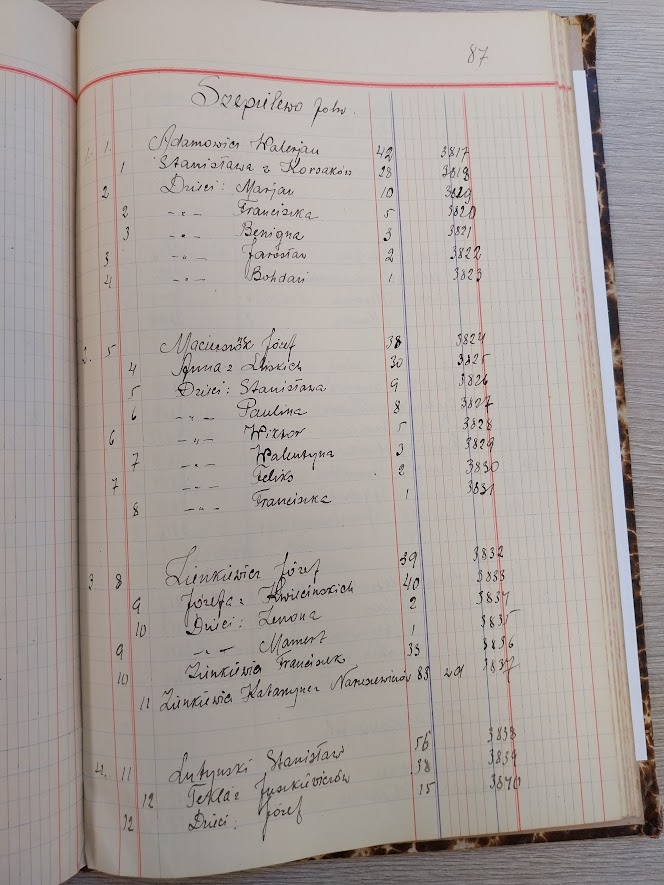 87
Szepielewo folw.
1. 1. Adamowicz Walerjan 42 3817
1 Stanisława z Korsaków 28 3818
2 Dzieci: Marjan 10 3819
2 -"- Franciszka 5 3820
3 -"- Benigna 3 3821
3 -"- Jarosław 2 3822
4 -"- Bohdan 1 3823
2. 5 Józef 38 3824
4 Anna z 30 3825
5 Dzieci: Stanisława 9 3826
6 -"- Paulina 8 3827
6 -"- Wiktor 5 3828
7 -"- Walentyna 3 3829
7 -"- Feliks 2 3830
8 -"- Franciszka 1 3831
3 8 Zienkiewicz Józef 39 3832
9 Józefa z Kwiecińskich 40 3833
10 Dzieci: Zenona 2 3834
9 -"- Mamert 1 3835
10 Zienkiewicz Franciszek 33 3836
11 Zienkiewicz Katarzyna z Naruszewiczów 88 wd 3837
4. 11 Lutyński Stanisław 56 3838
12 Tekla z Juszkiewiczów 38 3839
12 Dzieci: Józef 15 3840